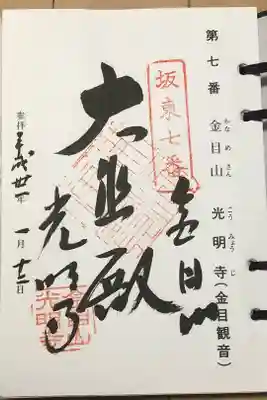 第七番 金目山 光明寺(金目観音)
かなめさん こうみょうじ
坂東七番
金目山
大悲殿
光明寺
奉拝 平成卅一年 一月十二日